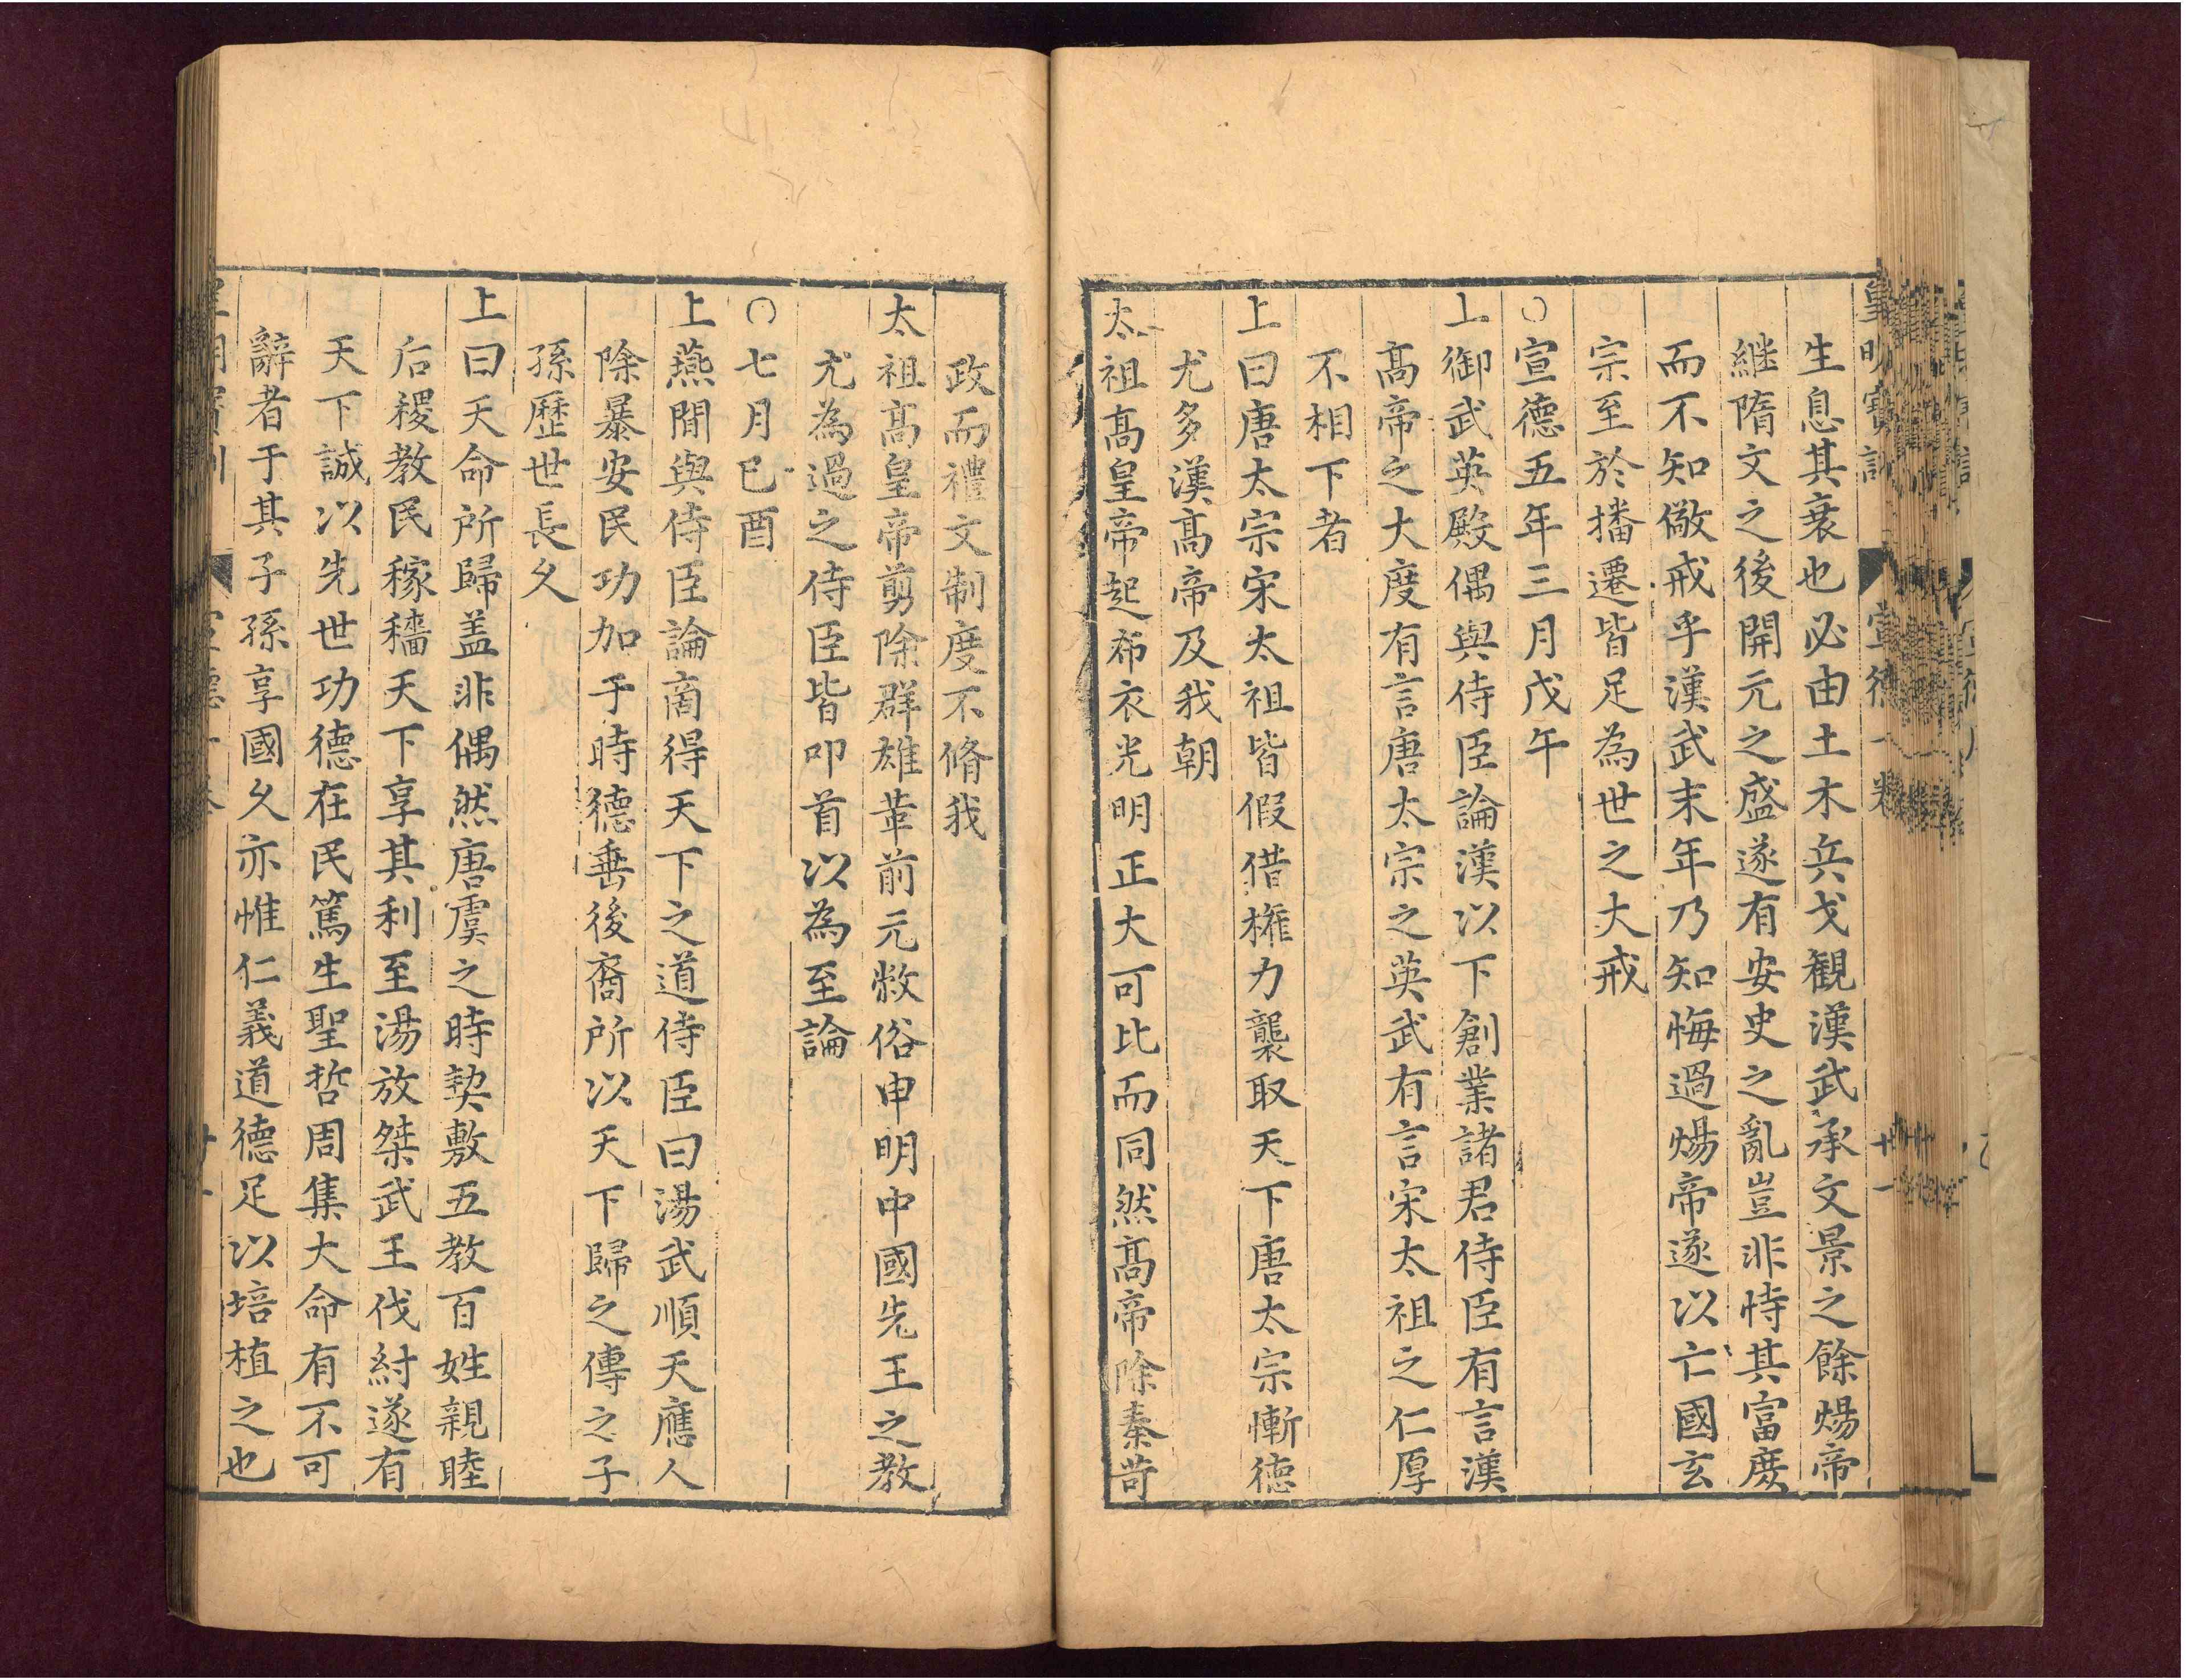 皇明寶訓 宣德一卷 十一
生息其衰也必由土木兵戈觀漢武承文景之餘煬帝
継隋文之後開元之盛遂有安史之亂豈非恃其富庶
而不知儆戒乎漢武末年乃知悔過煬帝遂以亡國玄
宗至於播遷皆足為世之大戒
○宣德五年三月戊午
上御武英殿偶與侍臣論漢以下創業諸君侍臣有言漢
髙帝之大度有言唐太宗之英武有言宋太祖之仁厚
不相下者
上曰唐太宗宋太祖皆假借權力襲取天下唐太宗慚德
尤多漢髙帝及我朝
太祖髙皇帝起布衣光明正大可比而同然髙帝除秦苛
政而禮文制度不脩我
太祖髙皇帝剪除群雄革前元敝俗申明中國先王之教
尤為過之侍臣皆叩首以為至論
○七月已酉
上燕閒與侍臣論啇得天下之道侍臣曰湯武順天應人
除暴安民功加于時德垂後裔所以天下歸之傳之子
孫歷世長久
上曰天命所歸盖非偶然唐虞之時契敷五教百姓親睦
后稷教民稼穡天下享其利至湯放桀武王伐紂遂有
天下誠以先世功德在民篤生聖哲周集大命有不可
辭者于其子孫享國久亦惟仁義道德足以培植之也